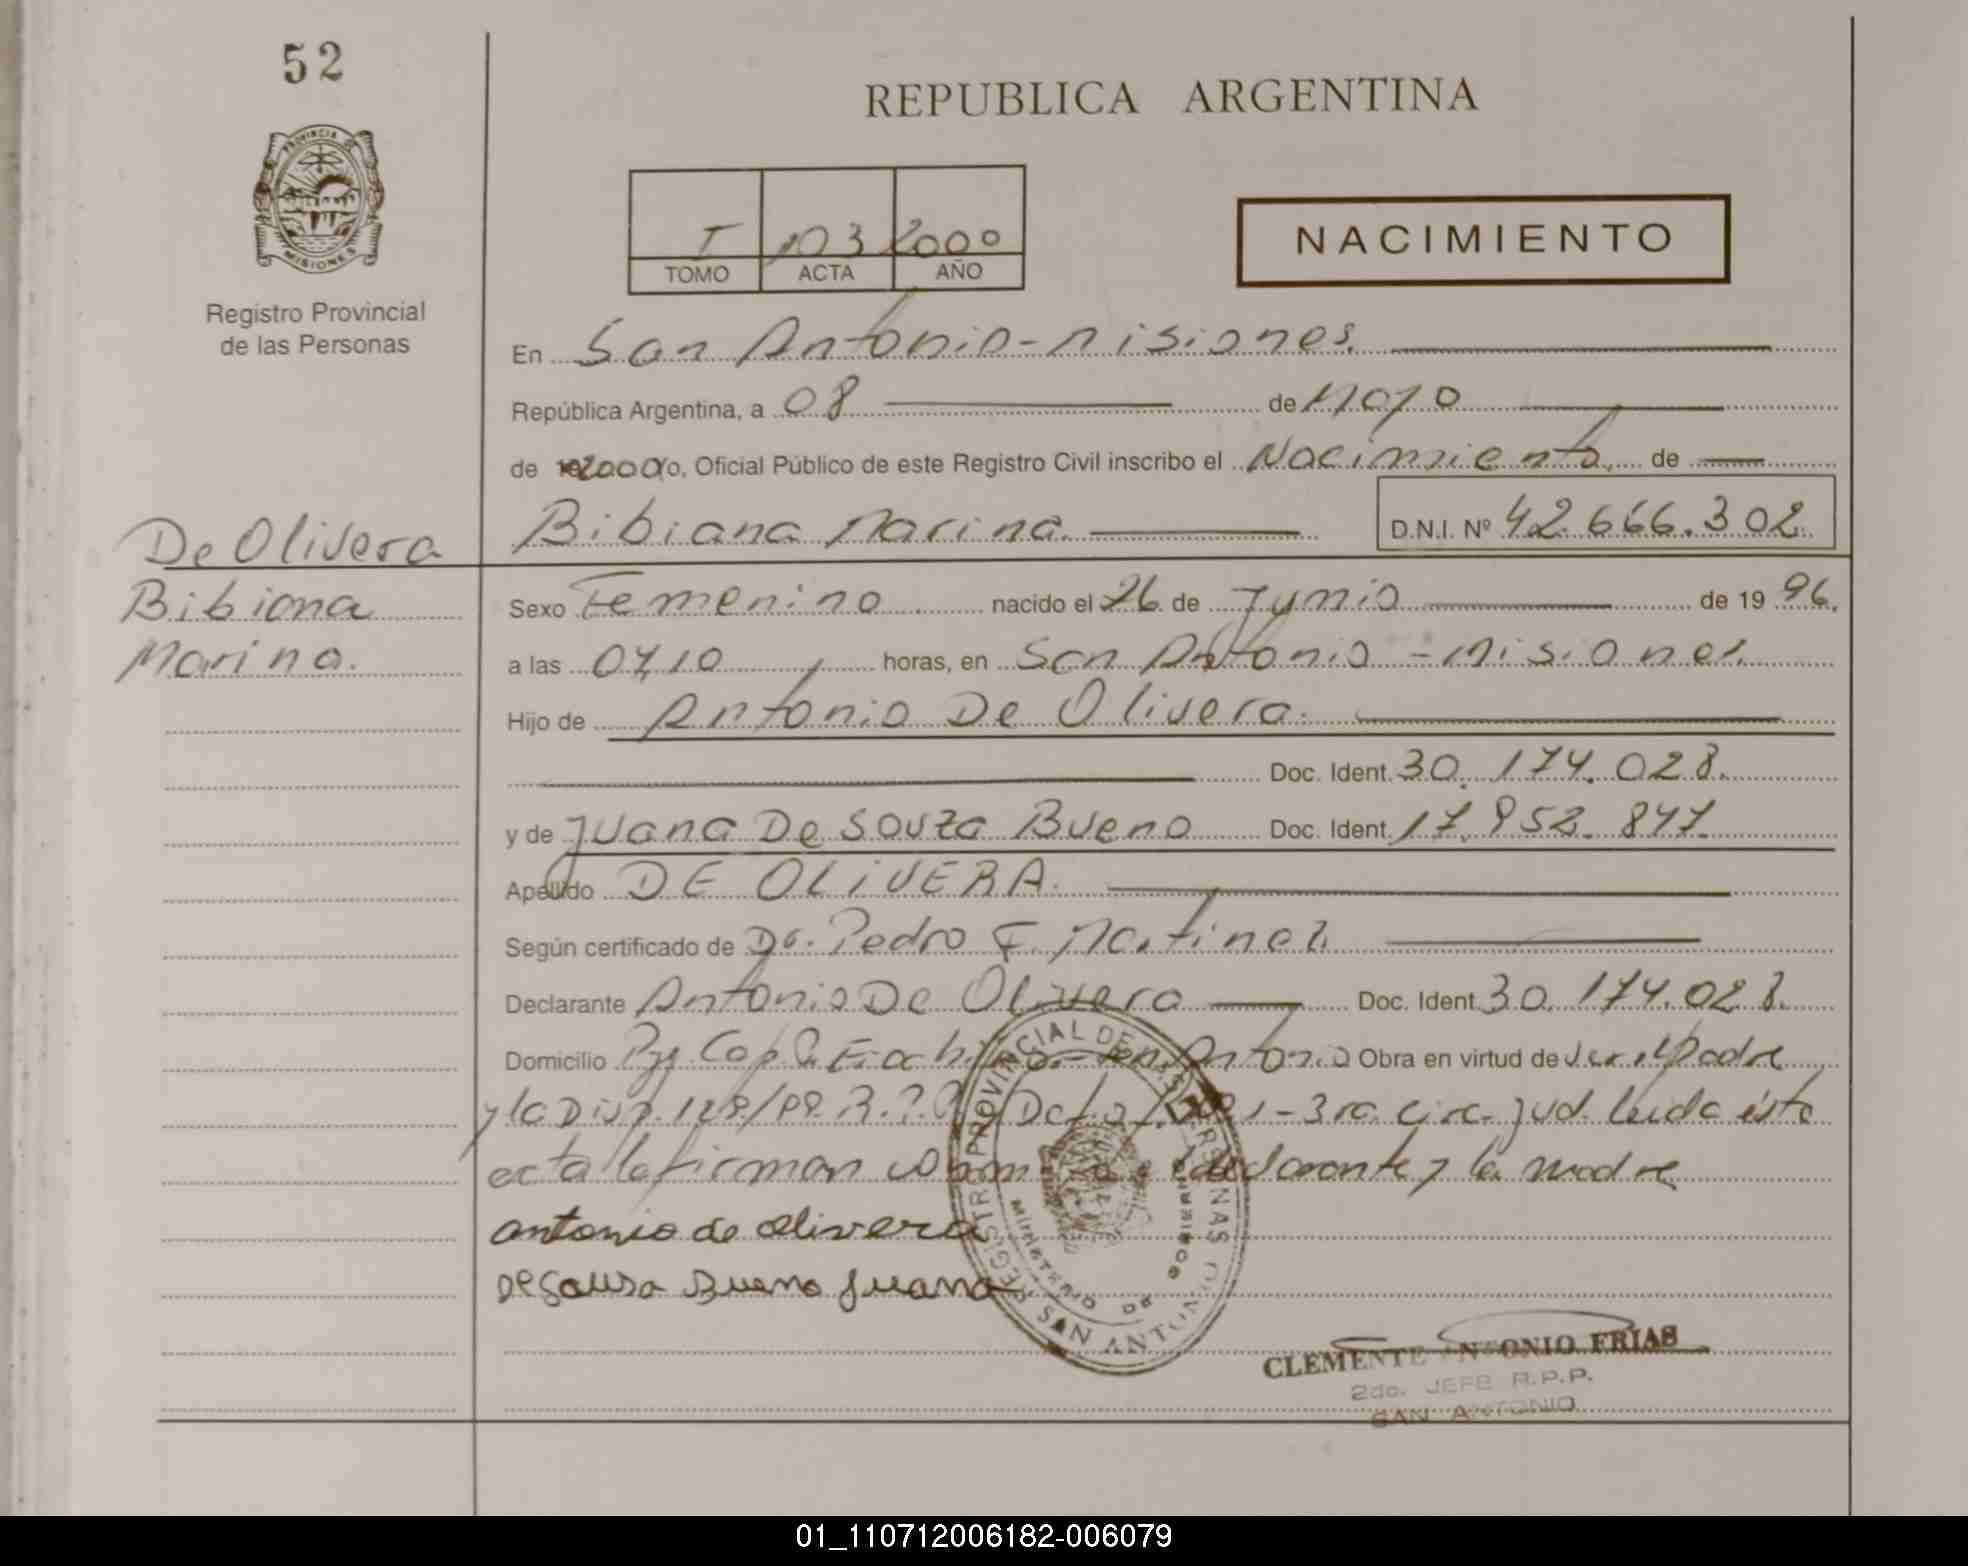 52
REPUBLICA ARGENTINA
PROVINCIA DE MISIONES
I 103 2000
TOMO ACTA AÑO
NACIMIENTO
Registro Provincial
de las Personas
En San Antonio - Misiones.
República Argentina, a 08 de Mayo
de 2000 yo, Oficial Público de este Registro Civil inscribo el Nacimiento de
Bibiana Marina. D.N.I. Nº 42.666.302
De Olivera
Bibiana
Marina.
Sexo Femenino nacido el 26 de Junio de 1996.
a las 07,10 horas, en San Antonio - Misiones.
Hijo de Antonio De Olivera.
Doc. Ident. 30.174.028.
y de Juana De Souza Bueno Doc. Ident. 17.952.847
Apellido DE OLIVERA.
Según certificado de Dr. Pedro F. Martinez
Declarante Antonio De Olivera Doc. Ident. 30.174.028.
Domicilio San Antonio Obra en virtud de ser el Padre
y la Disp. 3ra. Circ. Jud. leida ésta
acta la firman el declarante y la madre
antonio de olivera
De Sousa Bueno Juana
REGISTRO PROVINCIAL DE LAS PERSONAS
MINISTERIO DE GOBIERNO
SAN ANTONIO
CLEMENTE ANTONIO FRIAS
2do. JEFE R.P.P.
SAN ANTONIO
01_110712006182-006079